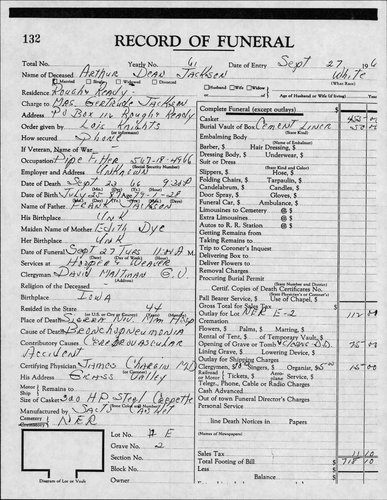 132 RECORD OF FUNERAL
Total No. Yearly No. 61 Date of Entry Sept 27, 196
Name of Deceased Arthur Dean Jackson White
Married Single Widowed Divorced (What Race)
Husband Wife Widow
Residence Rough & Ready
or Age of Husband or Wife (if living) Year
Charge to Mrs. Gertrude Jackson
Address P.O Box 112 Rough & Ready
Order given by Lois Knights
How secured Phone
If Veteran, Name of War
Occupation Pipe Fitter 547-18-4966
Employer and Address Unknown (Social Security Number)
Date of Death Sept 22 66
Date of Birth July 25
Name of Father Frank Jackson
His Birthplace Unk
Maiden Name of Mother Edith Dye
Her Birthplace Unk
Date of Funeral Sept 27 Tues 11:00 A M.
Services at Hooper & Weaver
Clergyman David Maltman G.V.
Religion of the Deceased
Birthplace Iowa
Resided in the State 44
Place of Death Sierra Nev. Mem Hosp
Cause of Death Bronchopneumonia
Contributory Causes Cerebrovascular
Accident
Certifying Physician James Chargin M.D
His Address Grass Valley
Motor Remains to
Ship
Size of Casket 300 H.P. Steel Coppette
Manufactured by
Cemetery NER
Lot No. # E
Grave No. 2
Section No.
Block No.
Owner
Diagram of Lot or Vault
Complete Funeral (except outlays) $
Casket
Burial Vault of Box Cement Liner 50 00
(State Kind)
Embalming Body
(Name of Embalmer)
Barber, Hair Dressing,
Dressing Body, Underwear,
Suit or Dress
(State Kind and Color)
Slippers, Hose,
Folding Chairs, Tarpaulin,
Candelabrum, Candles,
Door Spray, Gloves,
Funeral Car, Ambulance,
Limousines to Cemetery @ $
Extra Limousines @ $
Autos to R. R. Station @ $
Getting Remains from
Taking Remains to
Trip to Coroner's Inquest
Delivering Box to
Deliver Flowers to
Removal Charges
Procuring Burial Permit
(State Number and District)
Certif. Copies of Death Certificates No.
(State Physician's or Coroner's)
Pall Bearer Service, Use of Chapel,
Gross Total for Sales Tax
Outlay for Lot NER E-2 112 00
Cremation
Flowers, $ Palms, $ Matting, $
Rental of Tent, $ of Temporary Vault, $
Opening of Grave or Tomb 75 00
Lining Grave, Lowering Device,
Outlay for Shipping Charges
Clergymen, $10 Singers, $ Organist, $5.00 15 00
Railroad or Motor Tickets, $ Aero Service, $ Local Transfer, $
Telegr., Phone, Cable or Radio Charges
Cash Advanced
Out of town Funeral Director's Charges
Personal Service
line Death Notices in Papers
(Names of Newspapers)
Sales Tax 11 10
Total Footing of Bill $ 718 10
Less
Balance